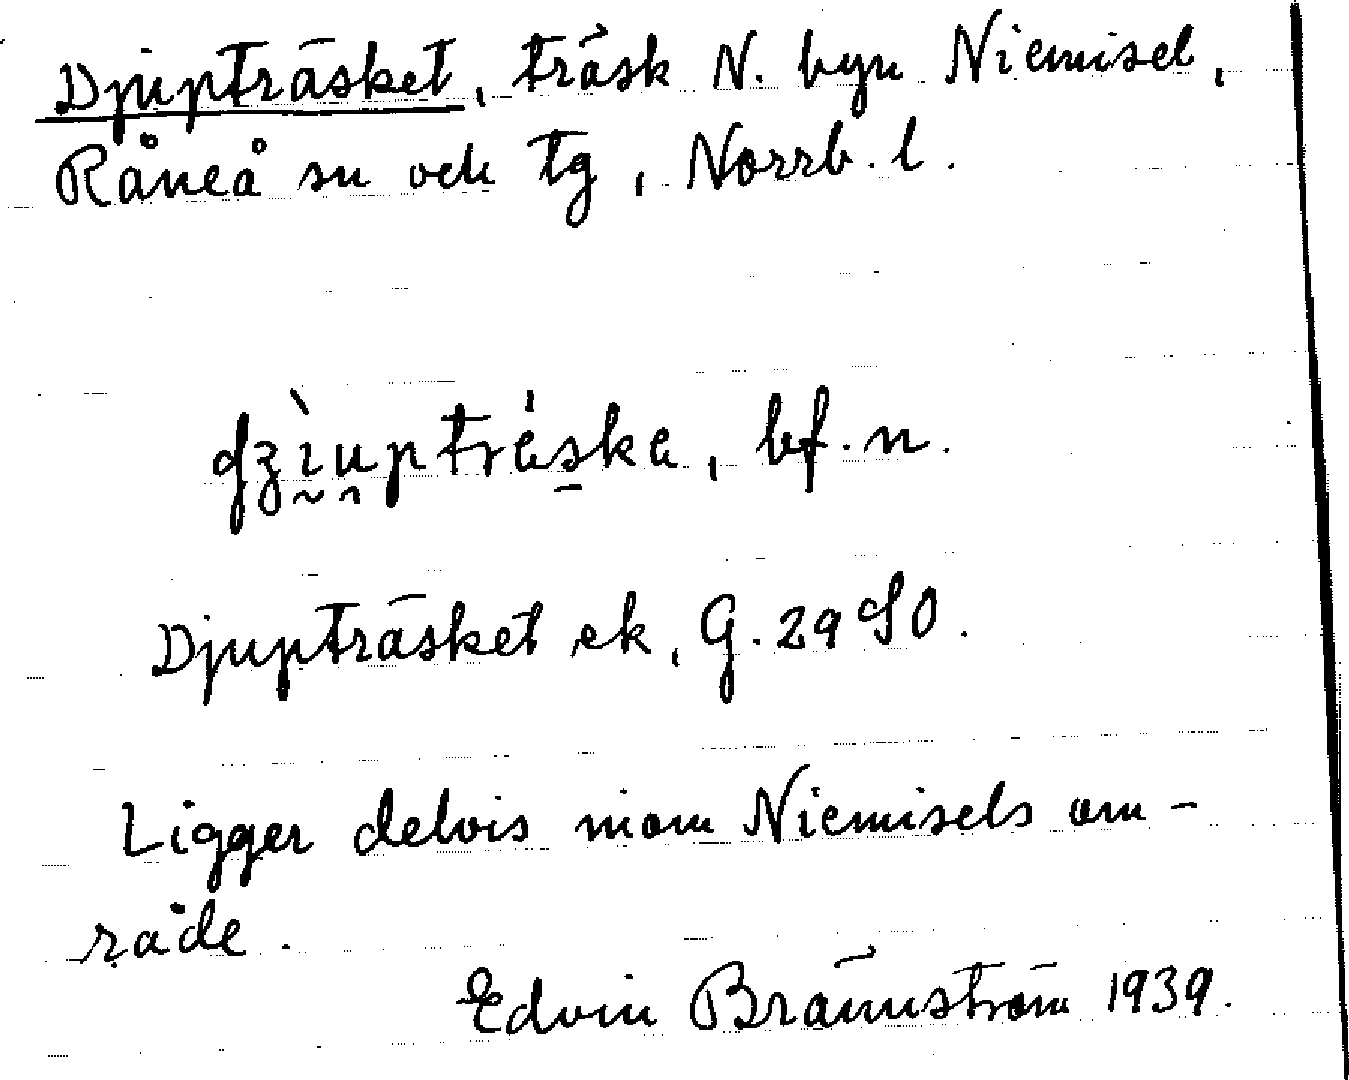 Djupträsket, träsk N. byn Niemisel,
Råneå sn och tg, Norrb. l.
dʒḭu̯ptrèska, bf. n.
Djupträsket ek, G. 29 SO.
Ligger delvis inom Niemisels om-
råde.
Edvin Brännström 1939.